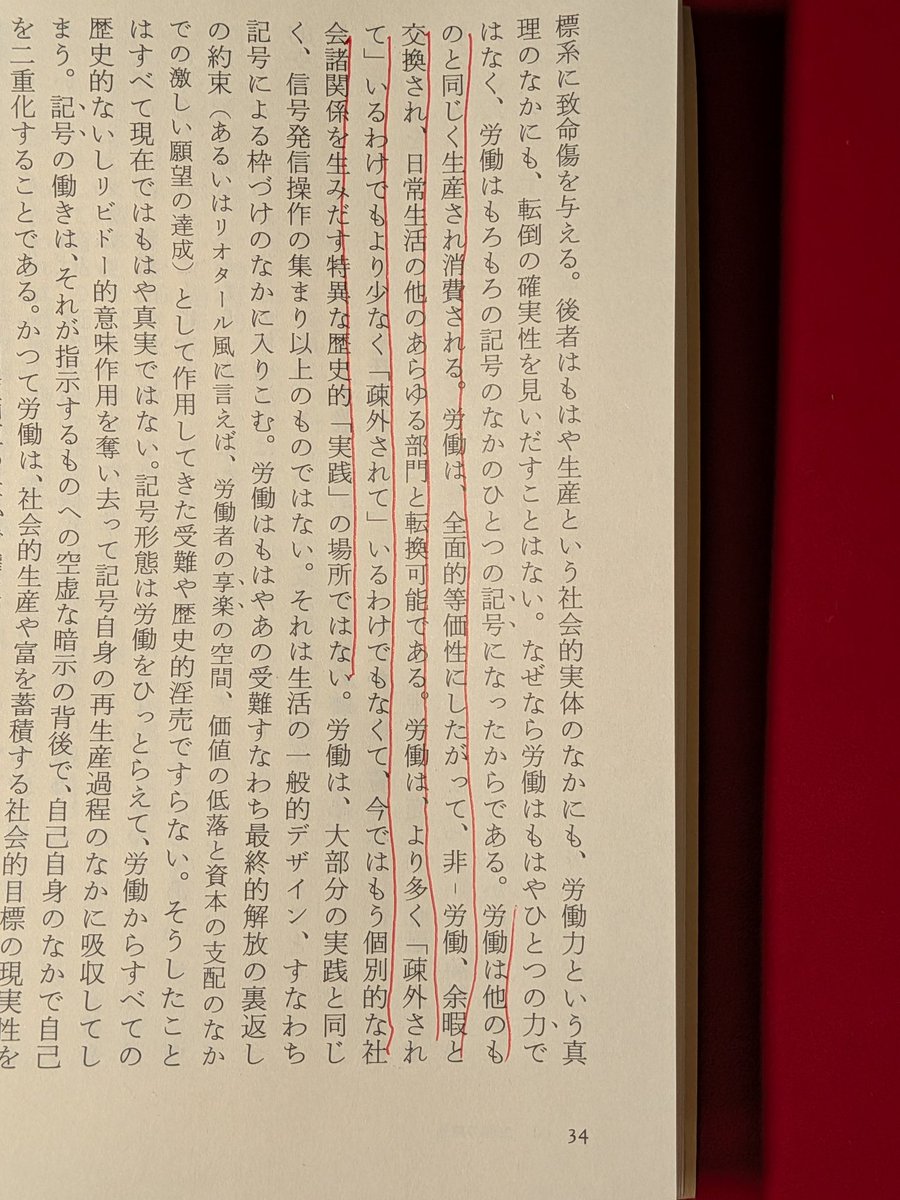 標系に致命傷を与える。後者はもはや生産という社会的実体のなかにも、労働力という真
理のなかにも、転倒の確実性を見いだすことはない。なぜなら労働はもはやひとつの力で
はなく、労働はもろもろの記号のなかのひとつの記号になったからである。労働は他のも
のと同じく生産され消費される。労働は、全面的等価性にしたがって、非‐労働、余暇と
交換され、日常生活の他のあらゆる部門と転換可能である。労働は、より多く「疎外され
て」いるわけでもより少なく「疎外されて」いるわけでもなくて、今ではもう個別的な社
会諸関係を生みだす特異な歴史的「実践」の場所ではない。労働は、大部分の実践と同じ
く、信号発信操作の集まり以上のものではない。それは生活の一般的デザイン、すなわち
記号による枠づけのなかに入りこむ。労働はもはやあの受難すなわち最終的解放の裏返し
の約束（あるいはリオタール風に言えば、労働者の享楽の空間、価値の低落と資本の支配のなか
での激しい願望の達成）として作用してきた受難や歴史的淫売ですらない。そうしたこと
はすべて現在ではもはや真実ではない。記号形態は労働をひっとらえて、労働からすべての
歴史的ないしリビドー的意味作用を奪い去って記号自身の再生産過程のなかに吸収してし
まう。記号の働きは、それが指示するものへの空虚な暗示の背後で、自己自身のなかで自己
を二重化することである。かつて労働は、社会的生産や富を蓄積する社会的目標の現実性を
34